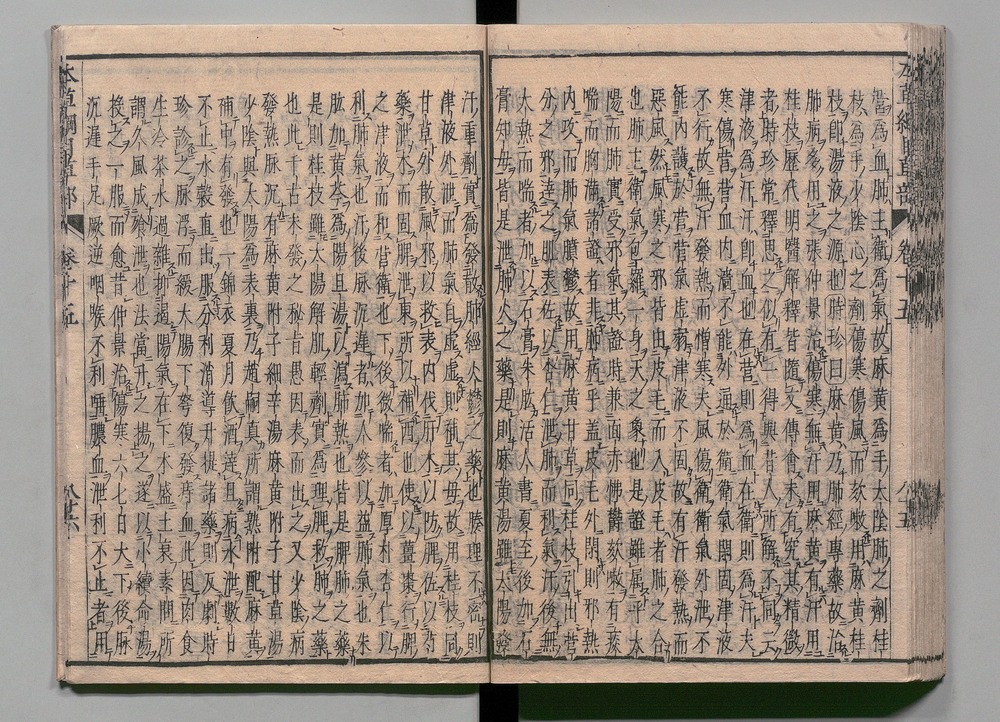 營為血肺主衛為氣故麻黄為手太陰肺之劑桂
枝為手少陰心之劑傷寒傷風而欬嗽用麻黄桂
枝卽湯液之源也時珍曰麻黄乃肺經專藥故治
肺病多用之張仲景治傷寒無汗用麻黄有汗用
桂枝歷代明醫解釋皆隨文傅會未有究其精微
者時珍常繹思之似有一得與昔人所解不同云
津液為汗汗卽血也在營則為血在衛則為汗夫
寒傷營營血内濇不能外通於衛衛氣閉固津液
不行故無汗發熱而憎寒夫風傷衛衛氣外泄不
能内護於營營氣虛弱津液不固故有汗發熱而
惡風然風寒之邪皆由皮毛而入皮毛者肺之合
也肺主衛氣包羅一身天之象也是證雖属乎太
陽而肺實受邪氣其證時兼面赤怫鬱欬嗽有痰
喘而胸滿諸證者非肺病乎蓋皮毛外閉則邪熱
内攻而肺氣膹鬱故用麻黄甘草同桂枝引出營
分之邪達之肌表佐以杏仁泄肺而利氣汗後無
大熱而喘者加以石膏朱肱活人書夏至後加石
膏知母皆是泄肺火之藥是則麻黄湯雖太陽發
汗重劑實為發散肺經火鬱之藥也腠理不密則
津液外泄而肺氣自虛虛則補其母故用桂枝同
甘草外散風邪以救表内伐肝木以防脾佐以芍
藥泄木而固脾泄東所以補西也使以薑棗行脾
之津液而和營衛也下後微喘者加厚朴杏仁以
利肺氣也汗後脈沉遲者加人參以益肺氣也朱
肱加黄芩為陽旦湯以瀉肺熱也皆是脾肺之藥
是則桂枝雖太陽解肌輕劑實為理脾救肺之藥
也此千古未發之秘旨愚因表而出之又少陰病
發熱脈沉有麻黄附子細辛湯麻黄附子甘草湯
少陰與太陽為表裏乃趙嗣真所謂熟附配麻黄
補中有發也一錦衣夏月飲酒達旦病水泄數日
不止水穀直出服分利消導升提諸藥則反劇時
珍診之脈浮而緩大腸下弩復發痔血此因肉食
生冷茶水過雜抑遏陽氣在下木盛土衰素問所
謂久風成飧泄也法當升之揚之遂以小續命湯
投之一服而愈昔仲景治傷寒六七日大下後脈
沉遲手足厥逆咽喉不利唾膿血泄利不止者用